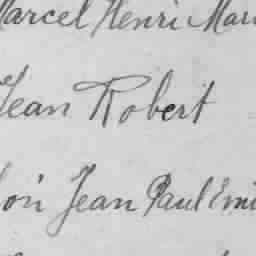 Marcel Henri Mar
Jean Robert
Jean Paul Emi